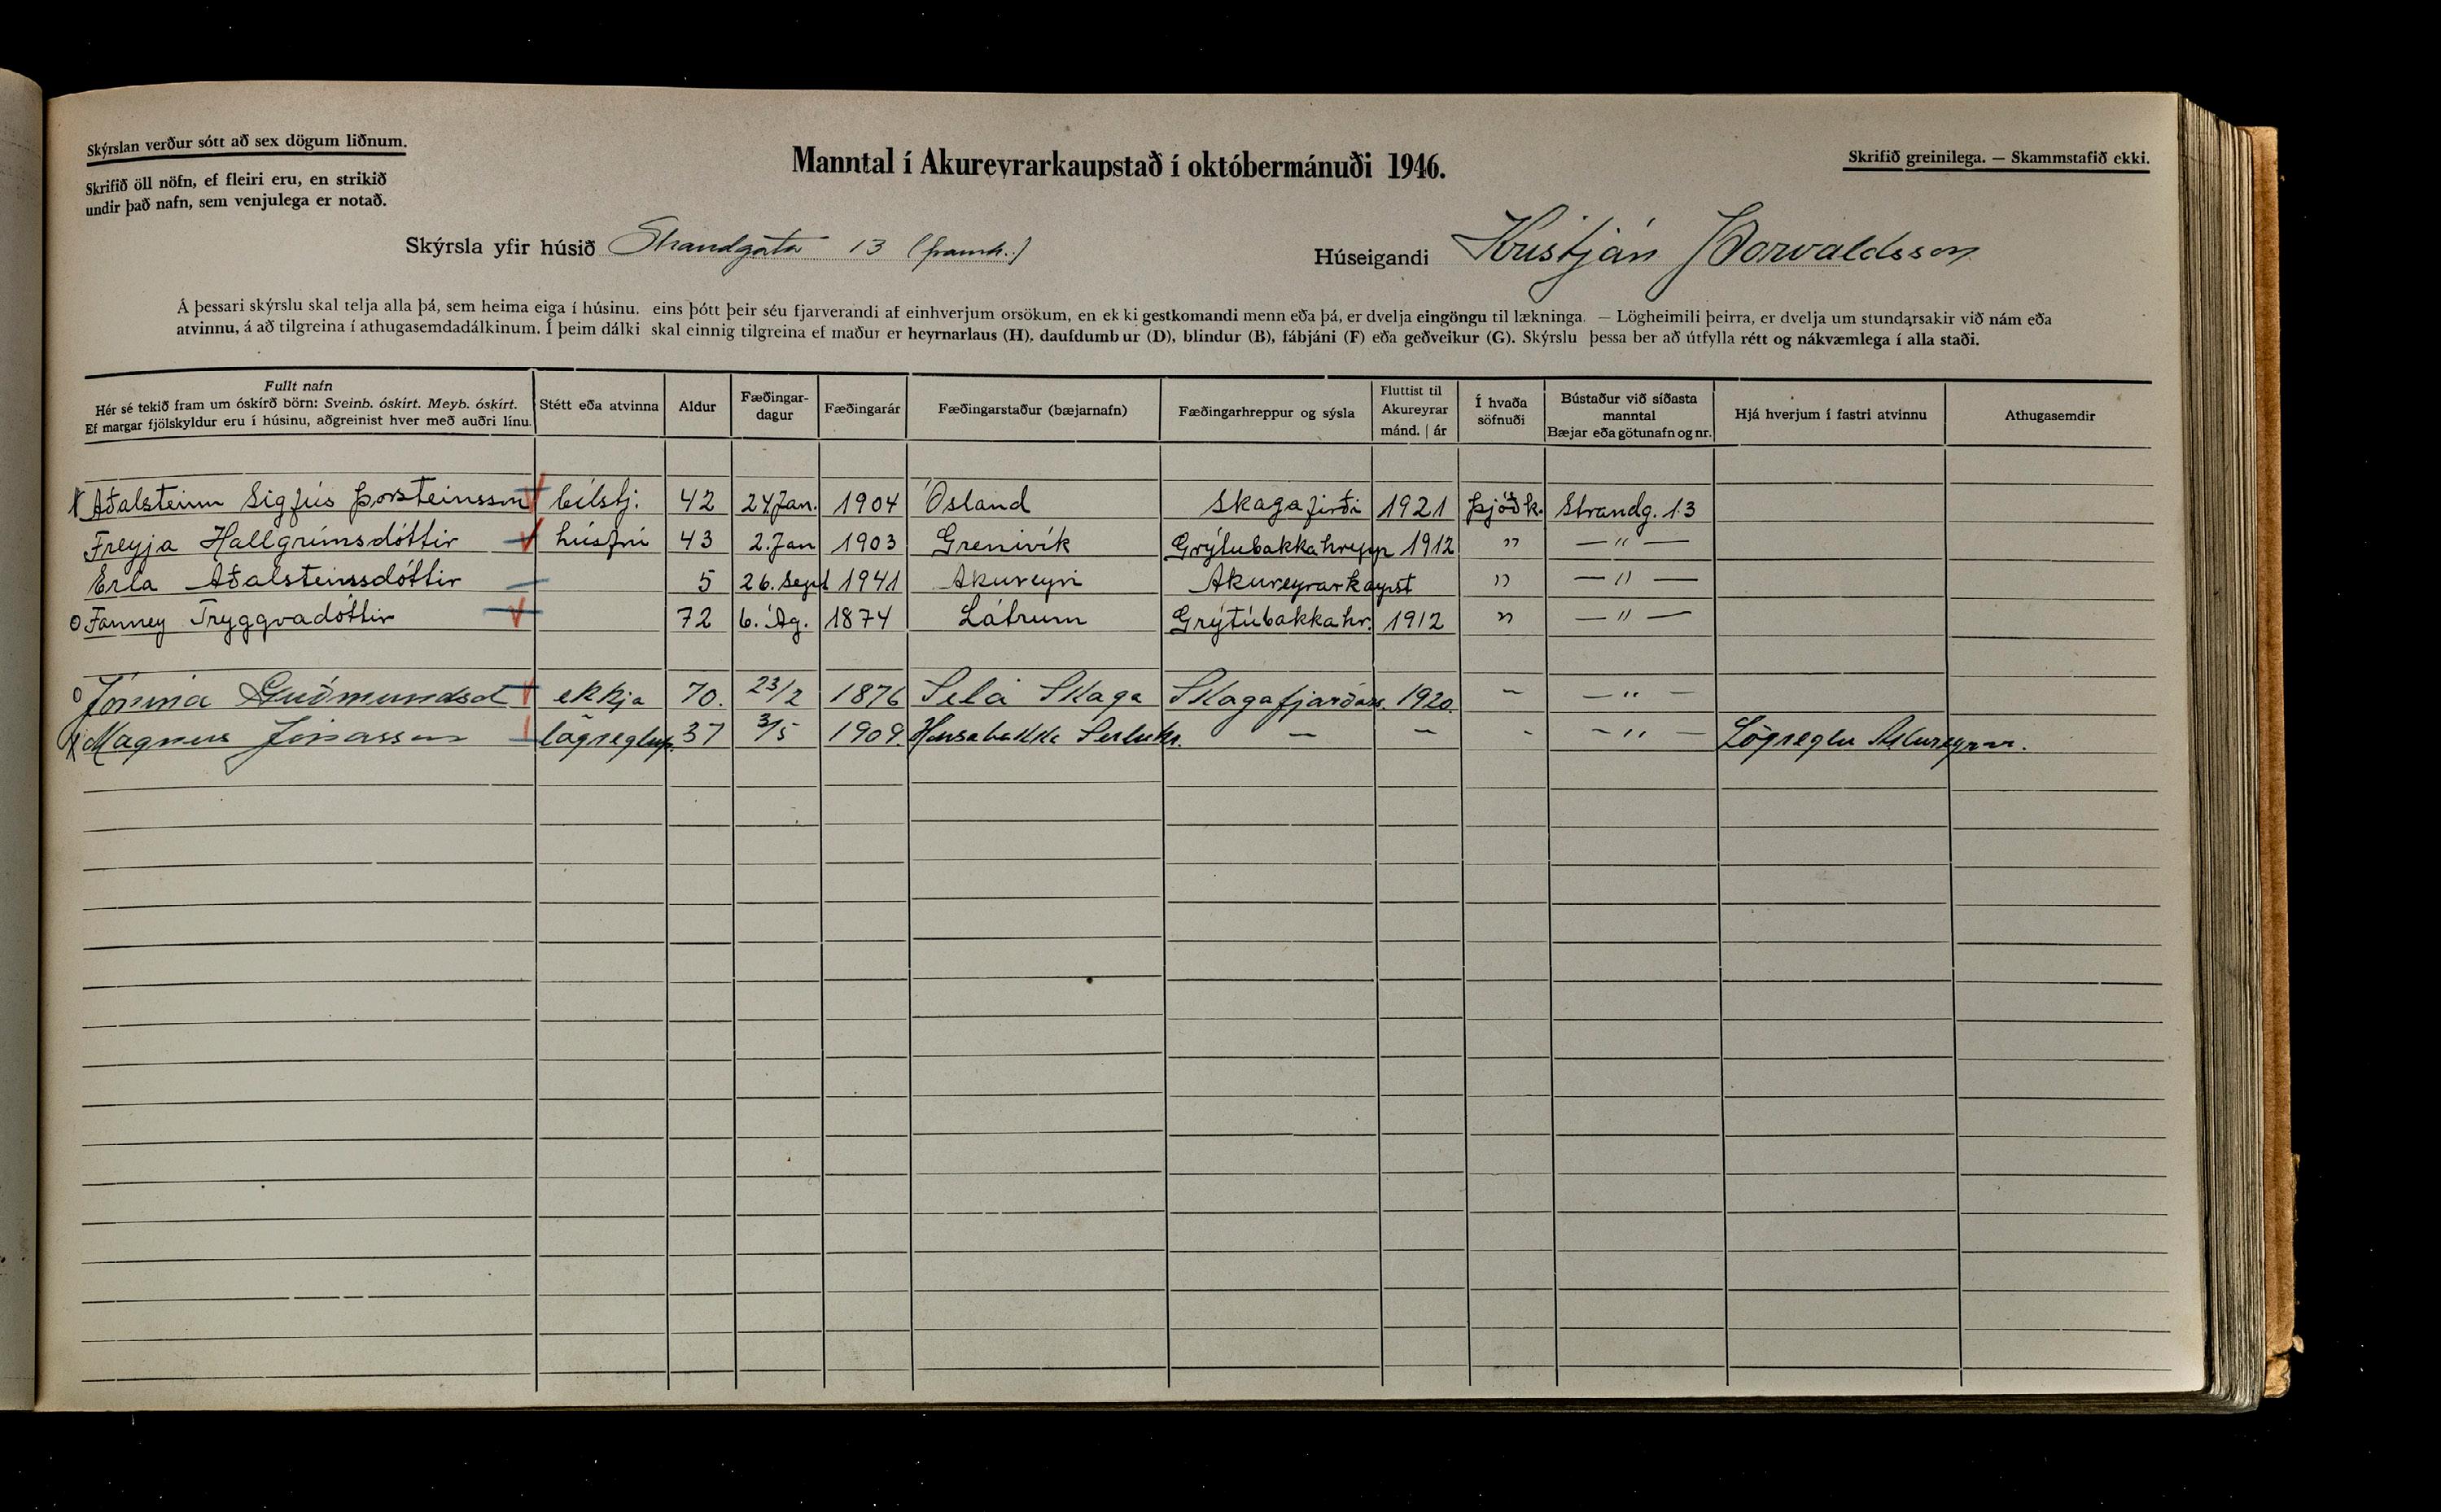 Skýrslan verður sótt að sex dögum liðnum.
Skrifið öll nöfn, ef fleiri eru, en strikið
undir það nafn, sem venjulega er notað.
Manntal í Akureyrarkaupstað í októbermánuði 1946.
Skrifið greinilega. — Skammstafið ekki.
Skýrsla yfir húsið Strandgata 13 (framh.)
Húseigandi Kristján Þorvaldsson
Á þessari skýrslu skal telja alla þá, sem heima eiga í húsinu, eins þótt þeir séu fjarverandi af einhverjum orsökum, en ekki gestkomandi menn eða þá, er dvelja eingöngu til lækninga. — Lögheimili þeirra, er dvelja um stundarsakir við nám eða
atvinnu, á að tilgreina í athugasemdadálkinum. Í þeim dálki skal einnig tilgreina ef maður er heyrnarlaus (H), daufdumbur (D), blindur (B), fábjáni (F) eða geðveikur (G). Skýrslu þessa ber að útfylla rétt og nákvæmlega í alla staði.
Fullt nafn
Hér sé tekið fram um óskírð börn: Sveinb. óskírt. Meyb. óskírt.
Ef margar fjölskyldur eru í húsinu, aðgreinist hver með auðri línu.
Stétt eða atvinna
Aldur
Fæðingar-
dagur
Fæðingarár
Fæðingarstaður (bæjarnafn)
Fæðingarhreppur og sýsla
Fluttist til
Akureyrar
mánd. | ár
Í hvaða
söfnuði
Bústaður við síðasta
manntal
Bæjar eða götunafn og nr.
Hjá hverjum í fastri atvinnu
Athugasemdir
Aðalsteinn Sigfús Þorsteinsson bílstj. 42 24 Jan. 1904 Ósland Skagafirði 1921 Þjóðk. Strandg. 13
Freyja Hallgrímsdóttir húsfrú 43 2. Jan 1903 Grenivík Grýtubakkahrepp 1912 " — " —
Erla Aðalsteinsdóttir 5 26. Sept 1941 Akureyri Akureyrarkaupst " — " —
o Fanney Tryggvadóttir 72 6. Ág. 1874 Látrum Grýtubakkahr. 1912 " — " —
o Jónína Guðmundsd ekkja 70. 23/2 1876 Selá Skaga Skagafjarðars. 1920. — — " —
Magnús Jónasson lögregluþ. 37 3/5 1909. Seiluhr. — — - — " — Lögreglu Akureyrar.